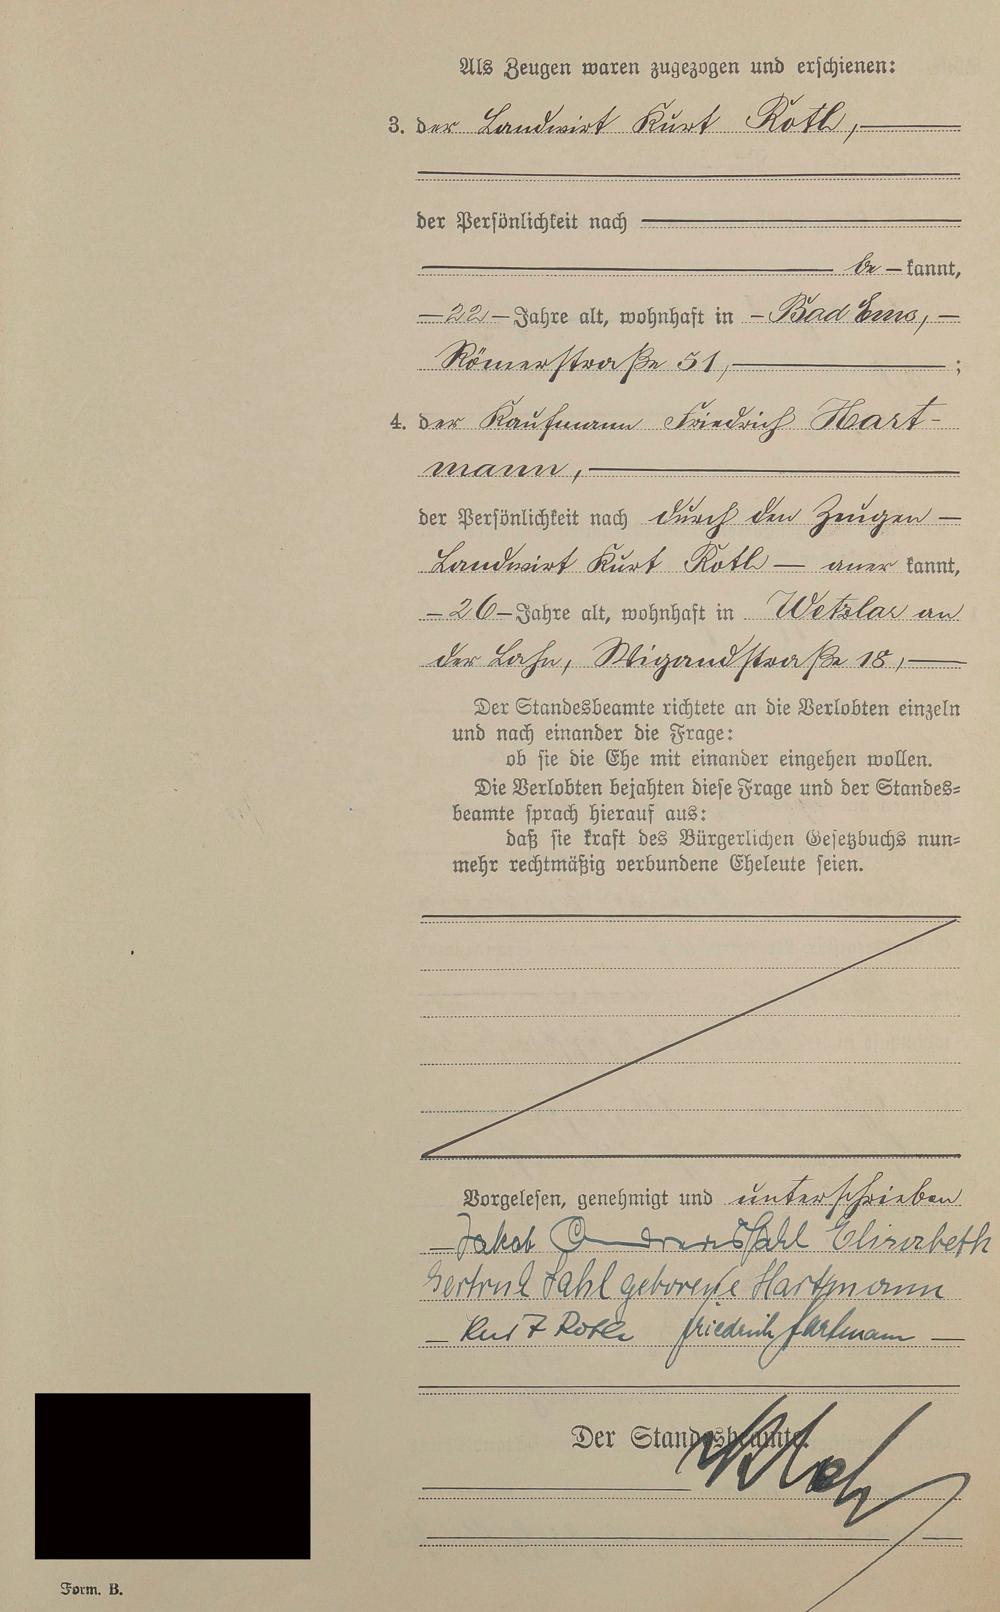 Als Zeugen waren zugezogen und erschienen:
3. der Landwirt Kurt Roth,
der Persönlichkeit nach
be - kannt,
- 22 - Jahre alt, wohnhaft in - Bad Ems, -
Römerstraße 51, ;
4. der Kaufmann Friedrich Hart-
mann,
der Persönlichkeit nach durch den Zeugen -
Landwirt Kurt Roth - aner kannt,
- 26 - Jahre alt, wohnhaft in Wetzlar an
der Lahn, Wigandstraße 18, -
Der Standesbeamte richtete an die Verlobten einzeln
und nach einander die Frage:
ob sie die Ehe mit einander eingehen wollen.
Die Verlobten bejahten diese Frage und der Standes-
beamte sprach hierauf aus:
daß sie kraft des Bürgerlichen Gesetzbuchs nun-
mehr rechtmäßig verbundene Eheleute seien.
Vorgelesen, genehmigt und unterschrieben
- Jakob Andreas Elisabeth
Gertrud geborene Hartmann
- Kurt Roth Friedrich Hartmann -
Der Standesbeamte.
Form. B.